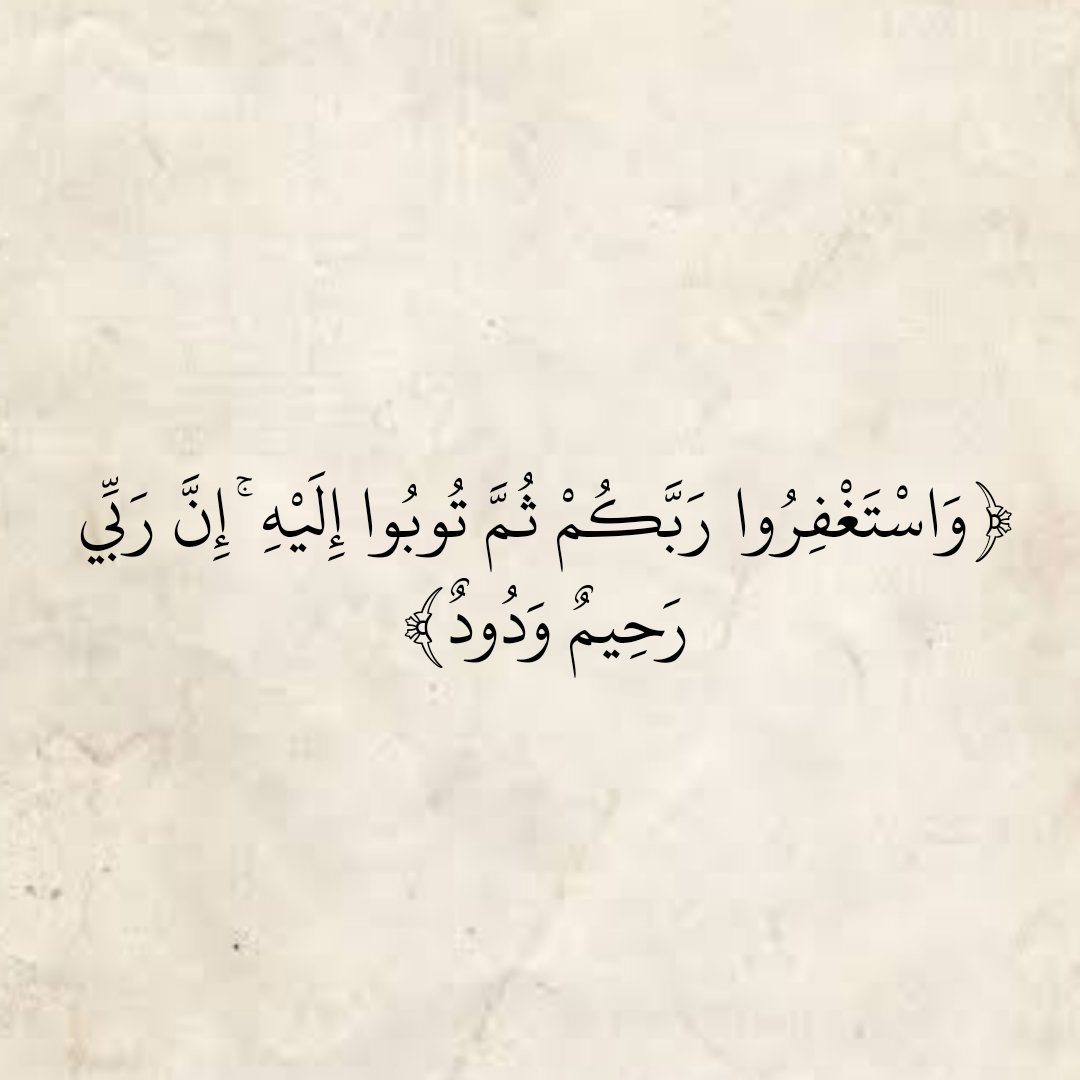 ﴿وَاسْتَغْفِرُوا رَبَّكُمْ ثُمَّ تُوبُوا إِلَيْهِ ۚ إِنَّ رَبِّي
رَحِيمٌ وَدُودٌ﴾